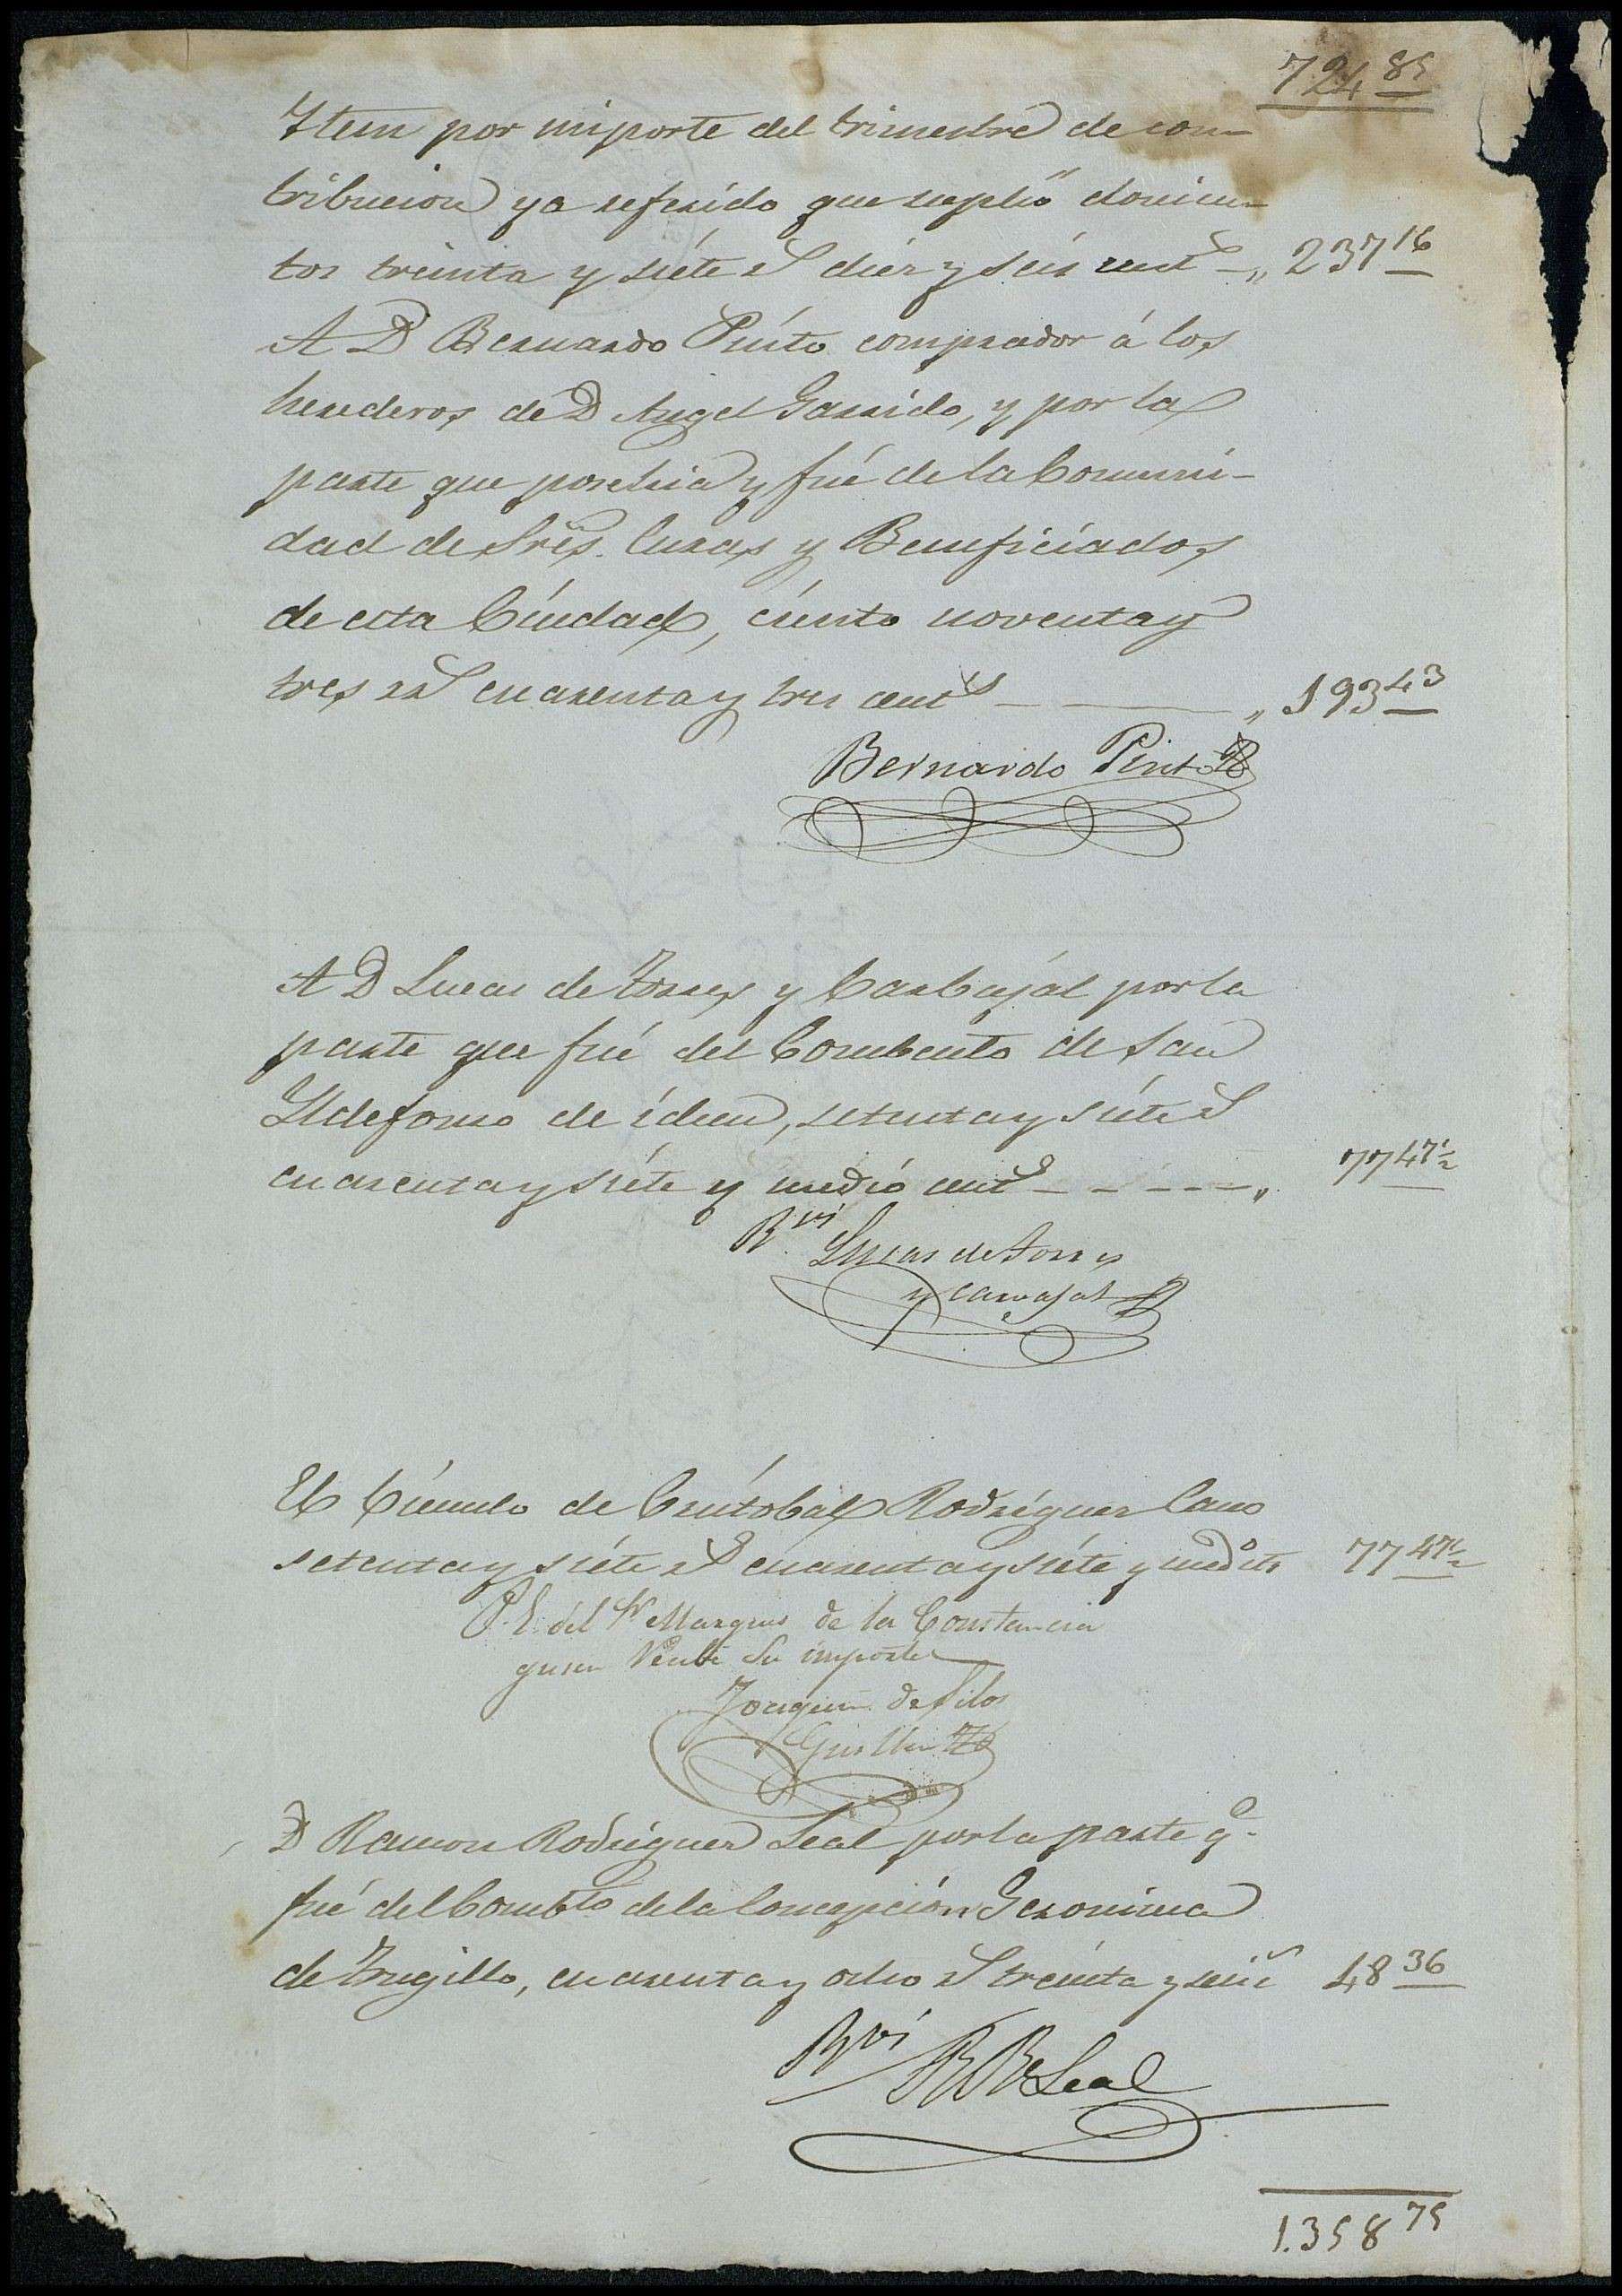 724 85
Item por importe del trimestre de con-
tribucion ya referido que suplió docien-
tos treinta y siéte rs diéz y séis cents „ 237 16
A D Bernardo Pinto comprador á los
herederos de D Angel Garrido, y por la
parte que posehia y fué de la Comuni-
dad de Sres. Curas y Beneficiados
de esta Ciudad, ciento noventa y
tres rs cuarenta y tres cents „ 193 43
Bernardo Pinto
A D Lucas de Torres y Carbajál por la
parte que fué del Combento de San
Yldefonso de idem, setenta y siéte rs
cuarenta y siéte y medio cents „ 77 47 ½
Rvi Lucas de Torres
y Carvajal
El Címulo de Cristobal Rodríguez Cano
setenta y siéte rs cuarenta y siéte y medo cts 77 47 ½
P. E. del Sr Marques de la Constancia
Recibi su importe
Joaquin de Silos
Guillen
D Ramon Rodriguez Leal por la parte q.e
fué del Combto de la Concepción Geronima
de Trugillo, cuarenta y ocho rs treinta y seis 48 36
Rvi R R Leal
1.358 75